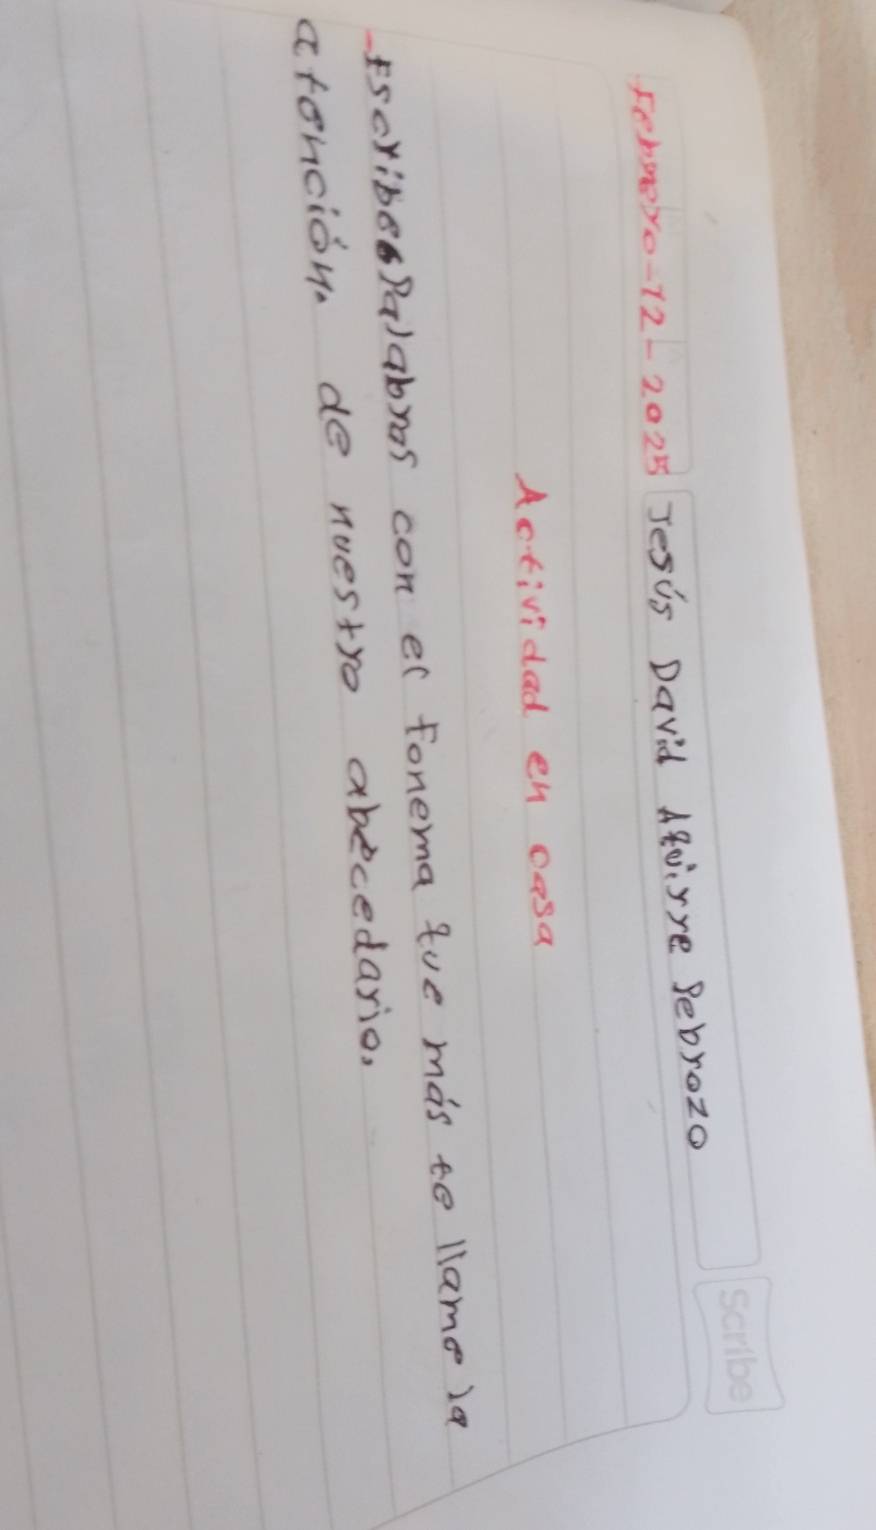 Scribe
Febrero-12-2025 Jesús David Aguirre Pebrozo
Actividad en casa
-Escribe 6 Palabras con el fonema que más te llame la
atención. de nuestro abecedario.